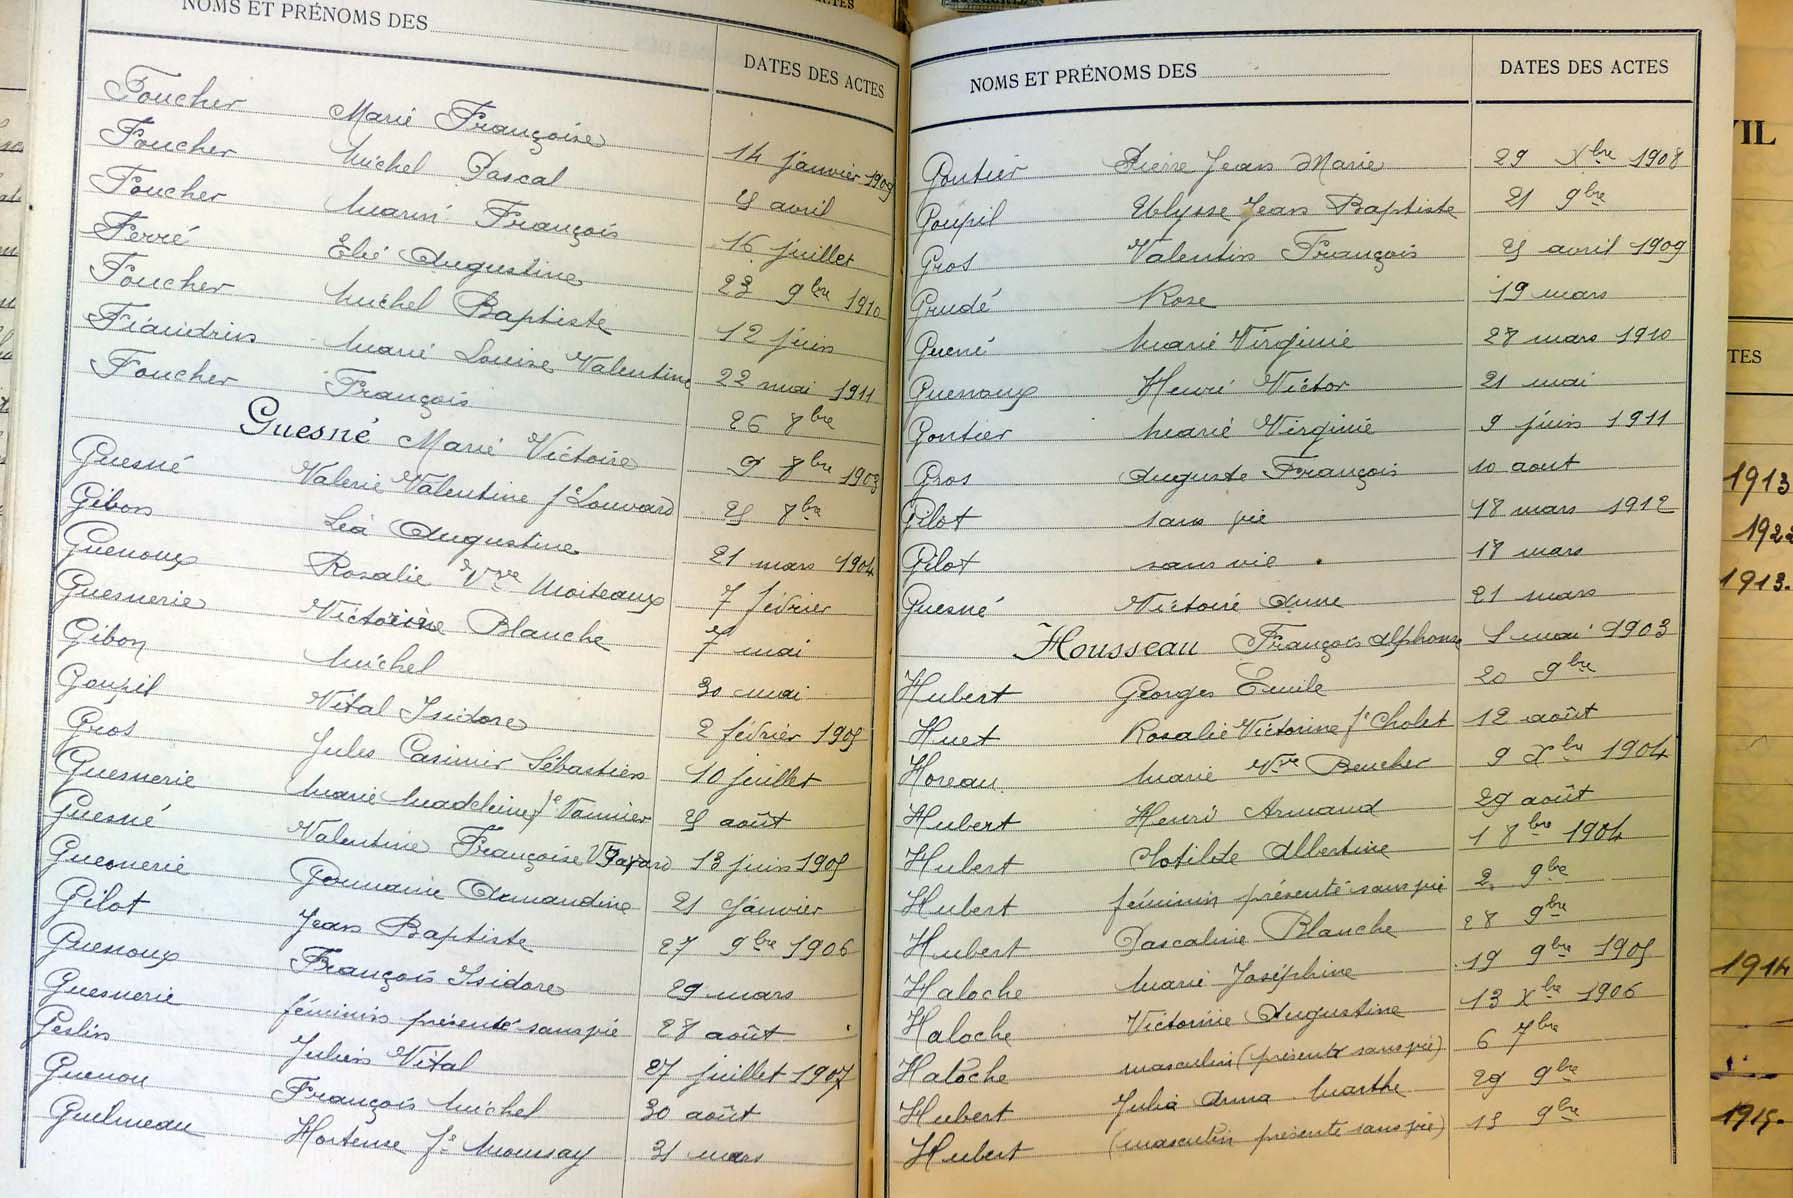 NOMS ET PRÉNOMS DES
DATES DES ACTES
Foucher Marie Françoise 14 janvier 1909
Foucher Michel Pascal 25 avril
Foucher Marin François 16 juillet
Ferré Elie Augustine 23 9bre 1910
Foucher Michel Baptiste 12 juin
Fiandrin Marie Louise Valentine 22 mai 1911
Foucher François 26 8bre
Guesné Marie Victoire 9 8bre 1903
Guesné Valerie Valentine fe Louvard 25 8bre
Gibon Léa Augustine 21 mars 1904
Guenoux Rosalie Vve Moiteaux 7 février
Guesnerie Victorine Blanche 7 mai
Gibon Michel 30 mai
Goupil Vital Isidore 2 février 1905
Gros Jules Casimir Sébastien 10 juillet
Guesnerie Marie Madeleine fe Vannier 25 août
Guesné Valentine Françoise 13 juin 1905
Guesnerie Germaine Armandine 21 janvier
Gilot Jean Baptiste 27 9bre 1906
Guenoux François Isidore 29 mars
Guesnerie féminin présenté sans vie 28 août
Geslin Julien Vital 27 juillet 1907
Guenou François Michel 30 août
Guilmeau Hortense fe Moussay 31 mars
NOMS ET PRÉNOMS DES
DATES DES ACTES
Gontier Pierre Jean Marie 29 Xbre 1908
Goupil Ulysse Jean Baptiste 21 9bre
Gros Valentin François 25 avril 1909
Grudé Rose 19 mars
Guené Marie Virginie 28 mars 1910
Guenoux Henri Victor 21 mai
Gontier Marie Virginie 9 juin 1911
Gros Auguste François 10 aout
Gilot sans vie 18 mars 1912
Gilot sans vie 18 mars
Guesné Victoire Anne 21 mars
Housseau François Alphonse 1 mai 1903
Hubert Georges Emile 20 9bre
Huet Rosalie Victorine fe Cholet 12 août
Horeau Marie Vve Beucher 9 Xbre 1904
Hubert Henri Armand 29 août
Hubert Clotilde Albertine 1 8bre 1904
Hubert féminin présenté sans vie 2 9bre
Hubert Pascaline Blanche 28 9bre
Haloche Marie Joséphine 19 9bre 1905
Haloche Victorine Augustine 13 Xbre 1906
Haloche masculin (présenté sans vie) 6 7bre
Hubert Julia Anna Marthe 29 9bre
Hubert (masculin présenté sans vie) 15 9bre
VIL
TES
1913
1922
1913.
1914
1915.